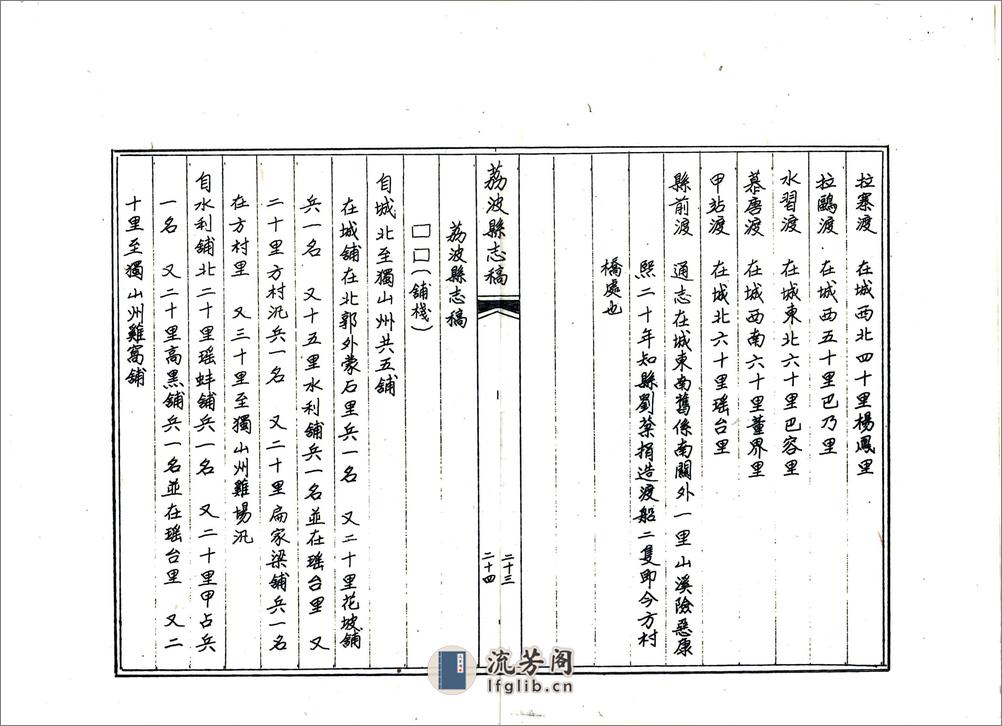 拉寨渡　在城西北四十里楊鳳里
拉鷗渡　在城西五十里巴乃里
水習渡　在城東北六十里巴容里
慕唐渡　在城西南六十里董界里
甲站渡　在城北六十里瑶台里
縣前渡　通志在城東南舊係南關外一里山溪險惡康
熙二十年知縣劉棻捐造渡船二隻即今方村
橋處也
荔波縣志稿
二十三
二十四
荔波縣志稿
□□（舖棧）
自城北至獨山州共五舖
在城舖在北郭外蒙石里兵一名　又二十里花坡舖
兵一名　又十五里水利舖兵一名並在瑶台里　又
二十里方村汛兵一名　又二十里扁家梁舖兵一名
在方村里　又三十里至獨山州雞塲汛
自水利舖北二十里瑶蚌舖兵一名　又二十里甲占兵
一名　又二十里高黑舖兵一名並在瑶台里　又二
十里至獨山州雞窩舖
流芳阁
lfglib.cn